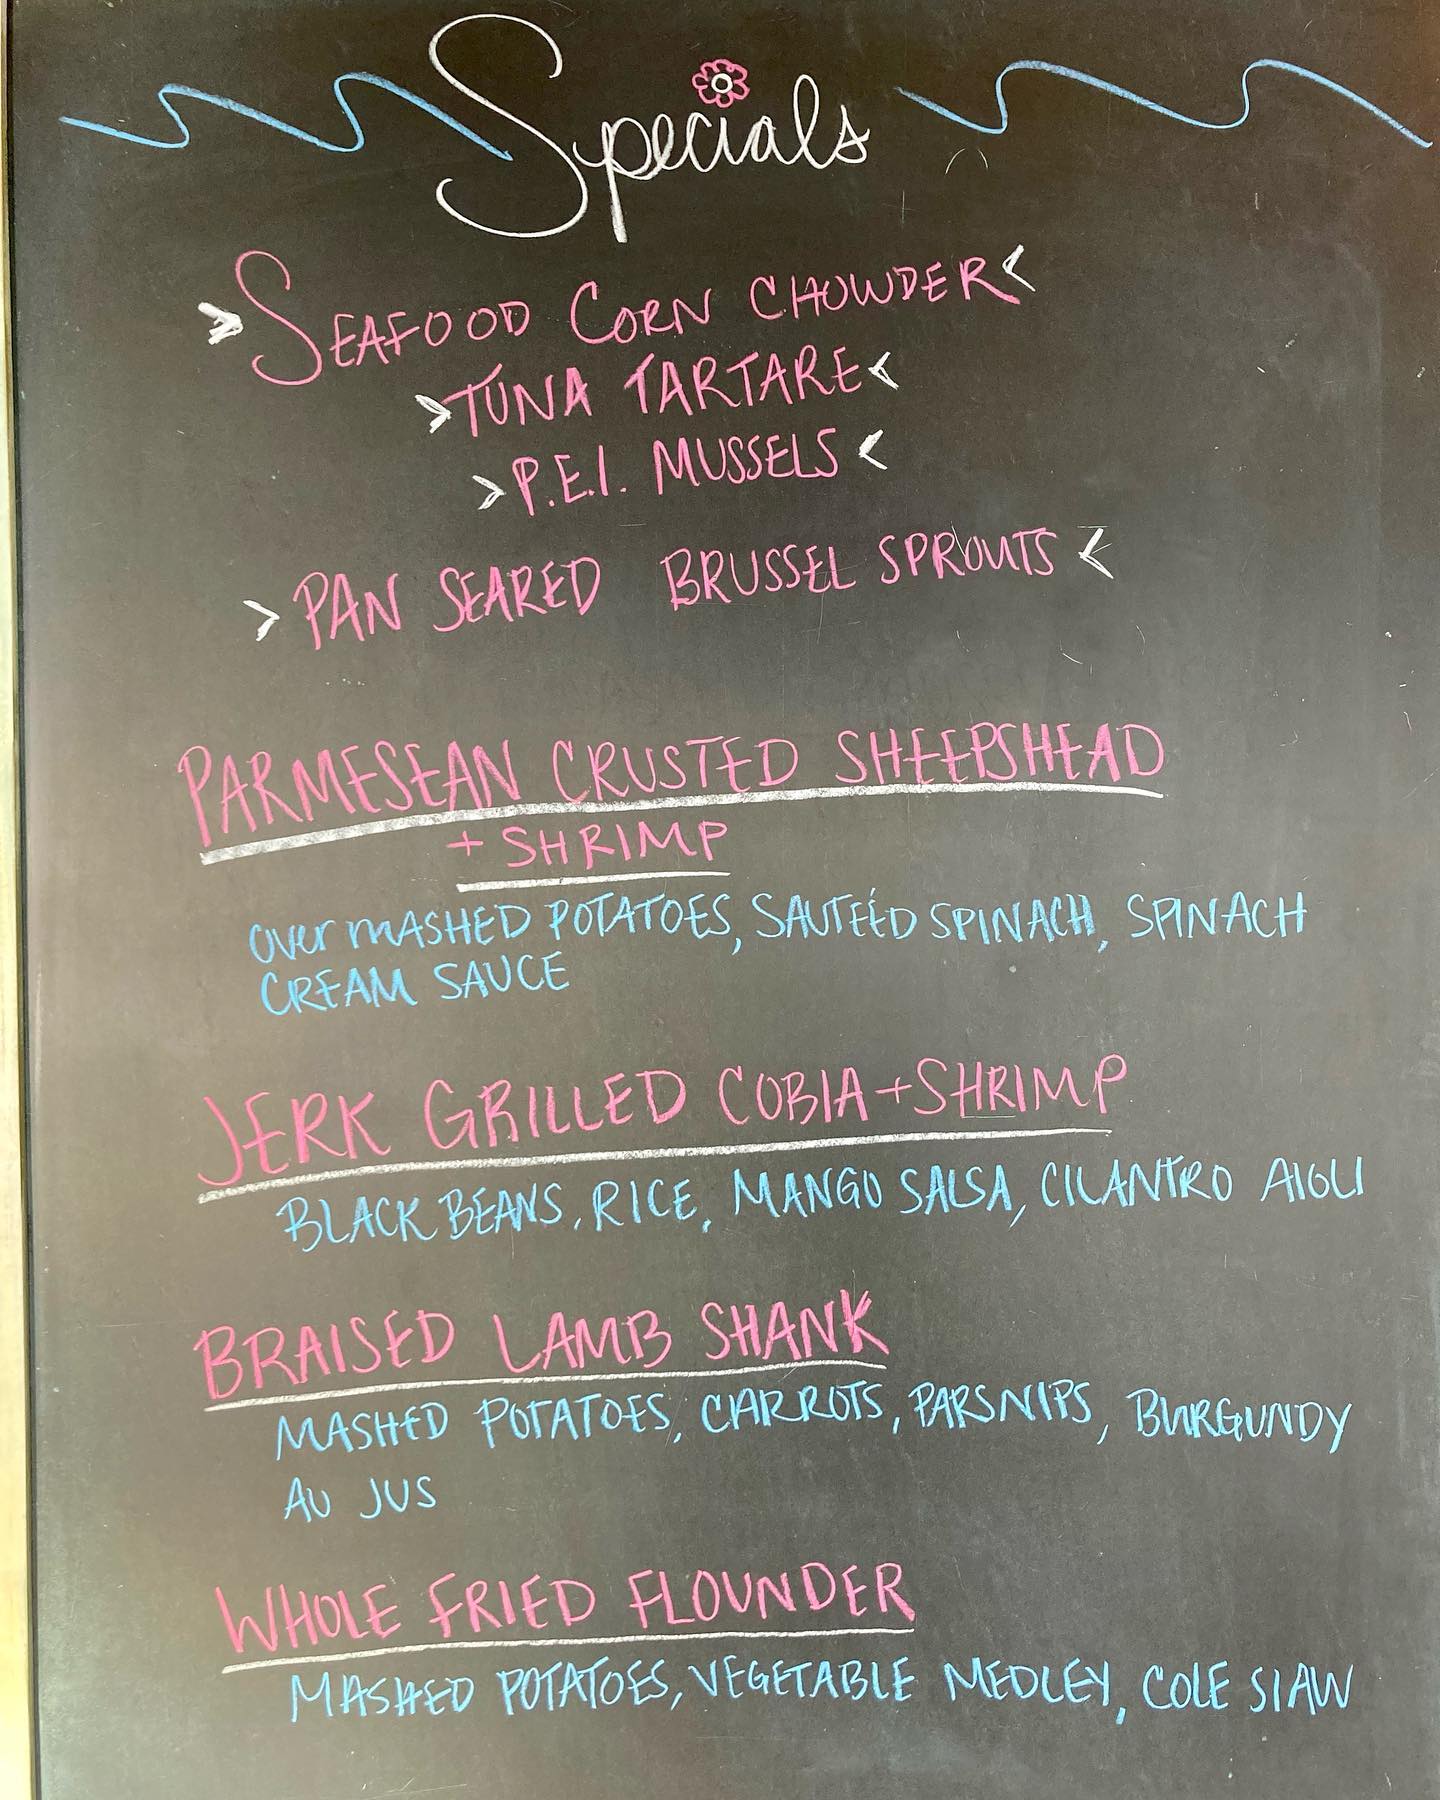 Specials
> SEAFOOD CORN CHOWDER <
> TUNA TARTARE <
> P.E.I. MUSSELS <
> PAN SEARED BRUSSEL SPROUTS <
PARMESEAN CRUSTED SHEEPSHEAD
+ SHRIMP
OVER MASHED POTATOES, SAUTEÉD SPINACH, SPINACH
CREAM SAUCE
JERK GRILLED COBIA + SHRIMP
BLACK BEANS, RICE, MANGO SALSA, CILANTRO AIOLI
BRAISED LAMB SHANK
MASHED POTATOES, CARROTS, PARSNIPS, BURGUNDY
AU JUS
WHOLE FRIED FLOUNDER
MASHED POTATOES, VEGETABLE MEDLEY, COLE SLAW